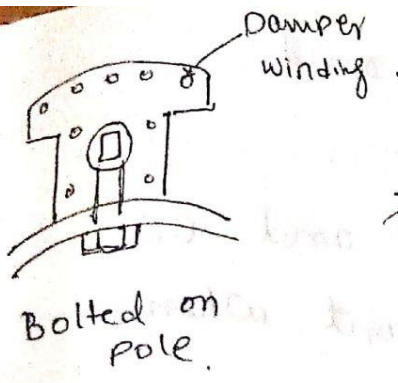 Damper
winding.
Bolted on
pole.